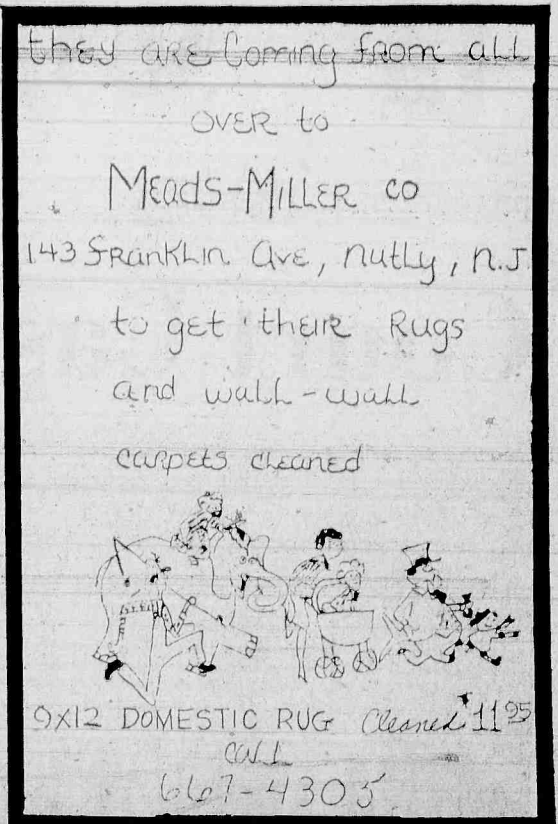 they are Coming from all
over to
Meads-Miller co
143 Franklin Ave, nutly, n.J
to get their Rugs
and wall-wall
carpets cleaned
9X12 DOMESTIC RUG Cleaned $11 95
CALL
667-4305